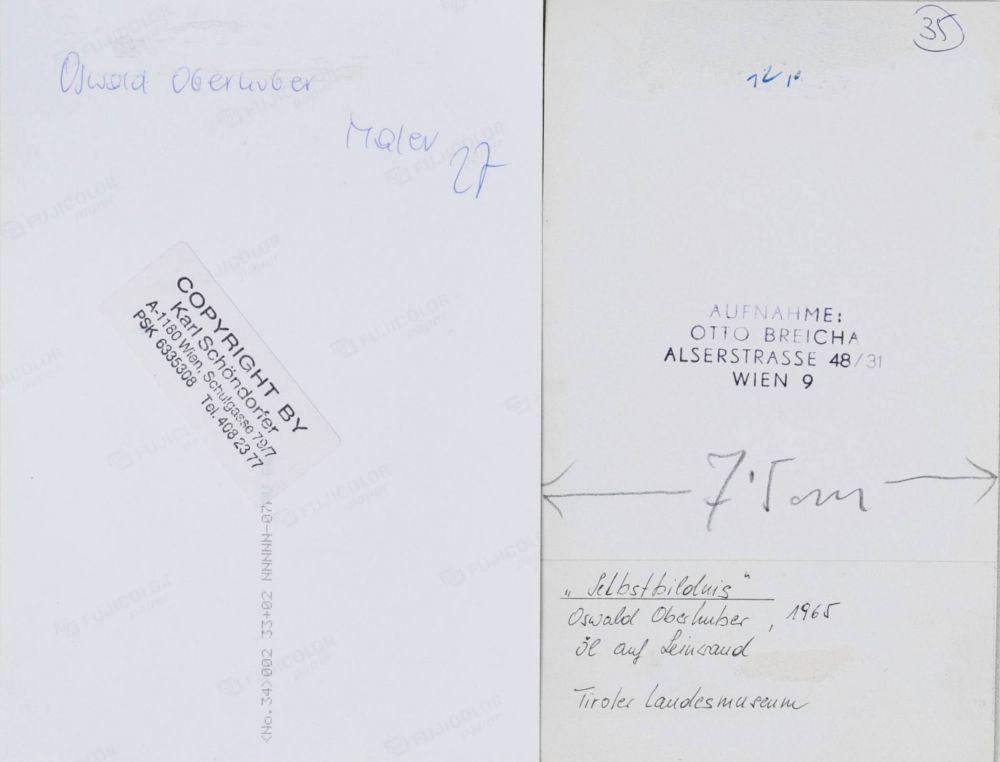 Oswald Oberhuber
Maler
27
COPYRIGHT BY
Karl Schöndorfer
A-1180 Wien, Schulgasse 79/7
PSK 6335308 Tel. 408 23 77
FUJICOLOR
paper
35
AUFNAHME:
OTTO BREICHA
ALSERSTRASSE 48/31
WIEN 9
7'5 cm
„Selbstbildnis"
Oswald Oberhuber, 1965
Öl auf Leinwand
Tiroler Landesmuseum